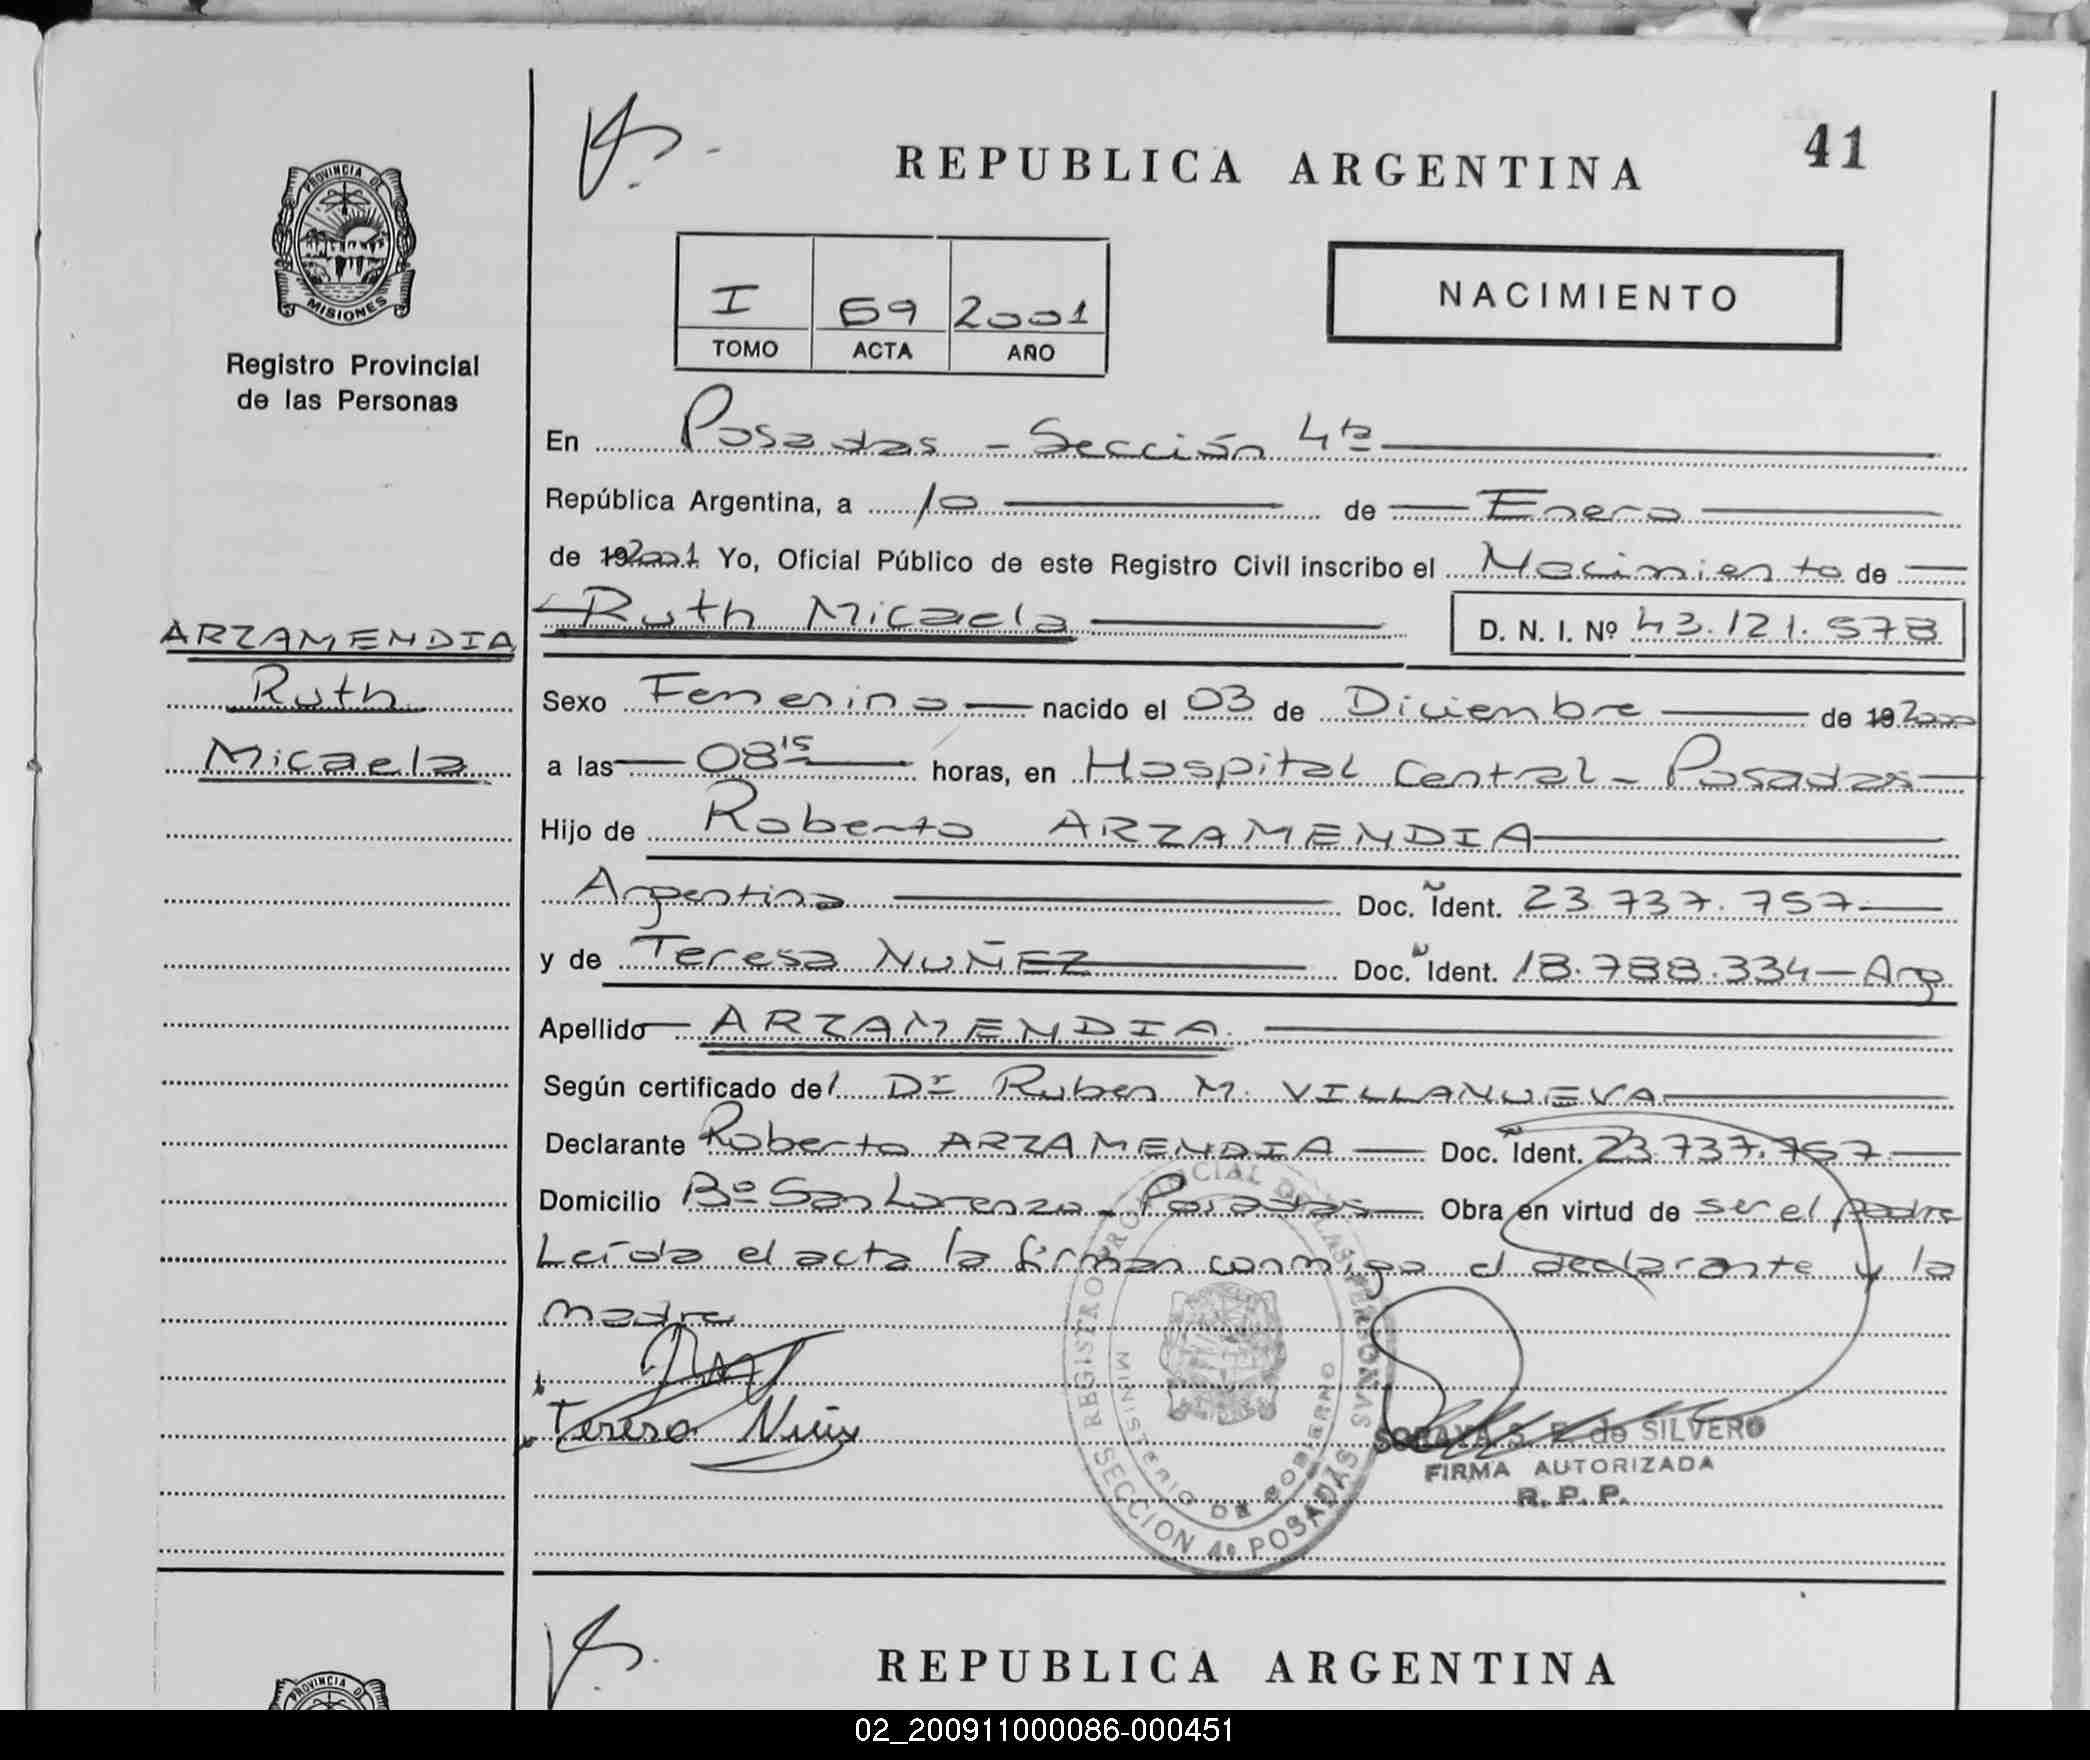 41
REPUBLICA ARGENTINA
PROVINCIA DE
MISIONES
Registro Provincial
de las Personas
I 69 2001
TOMO ACTA AÑO
NACIMIENTO
En Posadas - Sección 4ta
República Argentina, a 10 de Enero
de 192001 Yo, Oficial Público de este Registro Civil inscribo el Nacimiento de
Ruth Micaela D. N. I. Nº 43.121.578
ARZAMENDIA
Ruth
Micaela
Sexo Femenino nacido el 03 de Diciembre de 19 2000
a las 08 15 horas, en Hospital Central - Posadas
Hijo de Roberto ARZAMENDIA
Argentina Doc. Ident. 23.737.757
y de Teresa NUÑEZ Doc. Ident. 18.788.334 - Arg
Apellido ARZAMENDIA
Según certificado del Dr Ruben M. VILLANUEVA
Declarante Roberto ARZAMENDIA Doc. Ident. 23.737.757
Domicilio Bº San Lorenzo - Posadas Obra en virtud de ser el padre
Leída el acta la firman conmigo el declarante y la
madre
Teresa Nuñez
REGISTRO PROVINCIAL DE LAS PERSONAS
MINISTERIO DE GOBIERNO
SECCION 4º POSADAS
SORAYA S. F. de SILVERO
FIRMA AUTORIZADA
R. P. P.
REPUBLICA ARGENTINA
PROVINCIA DE
02_200911000086-000451